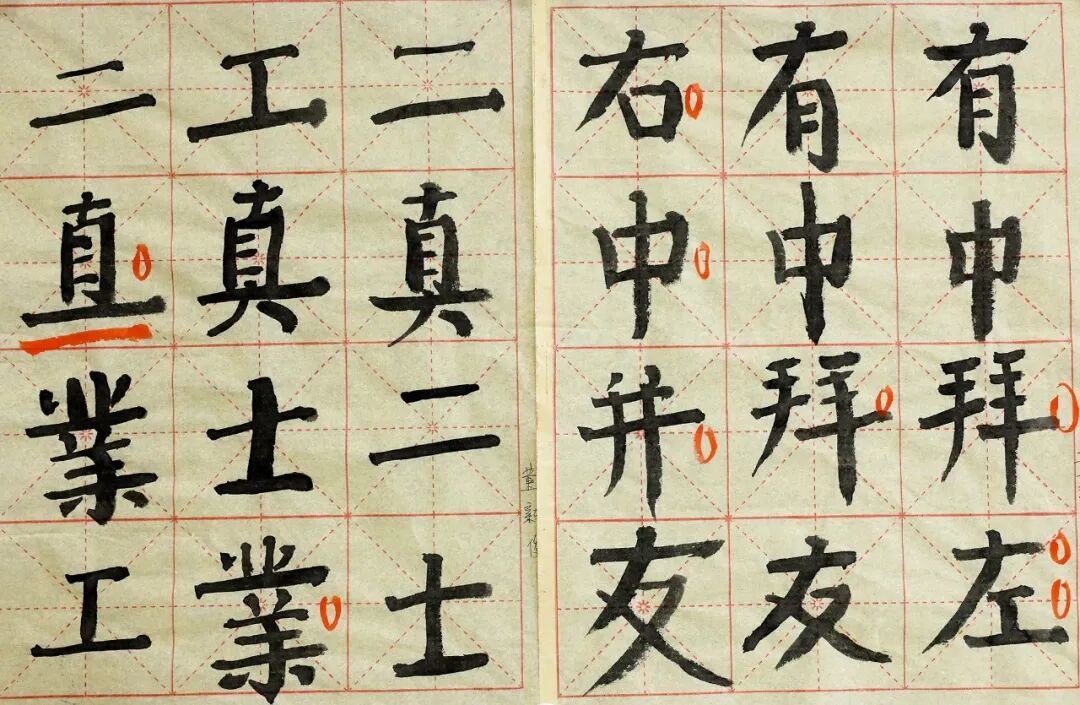 有中拜左
有中拜友
右中并友
二真二士
工真士業
二直業工